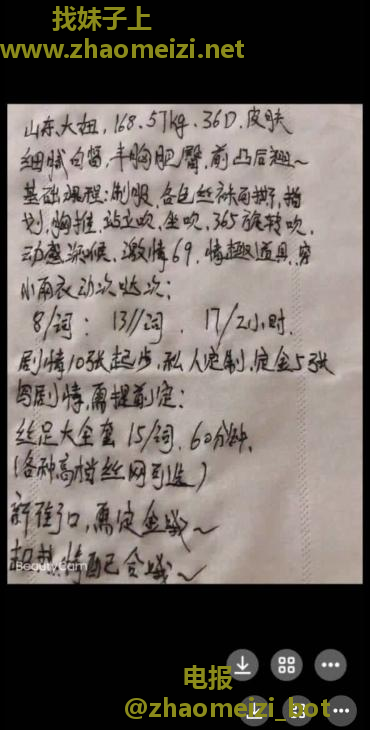 找妹子上
www.zhaomeizi.net
山东大妞，168.57kg.36D.皮肤
细腻白皙，丰胸肥臀，前凸后翘～
基础课程：制服，各色丝袜可撕，指
划，胸推，站立吹，坐吹，365旋转吹，
动感深喉，激情69，情趣道具，穿
小雨衣动次哒次：
8/词： 13//词 . 17/2小时.
剧情10张起步，私人定制，定金5张
因剧情，需提前定：
丝足大全套 15/词，60分钟，
（各种高档丝网可选）
新雅口，需定金哦～
超热情配合哦～
BeautyCam
电报
@zhaomeizi_bot